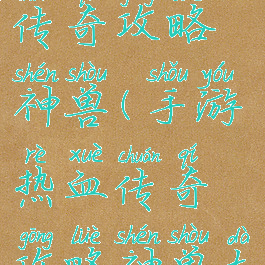 传奇攻略
shén shòu shǒu yóu
神兽(手游
rè xuè chuán qí
热血传奇
gōng lüè shén shòu dà
攻略神兽大